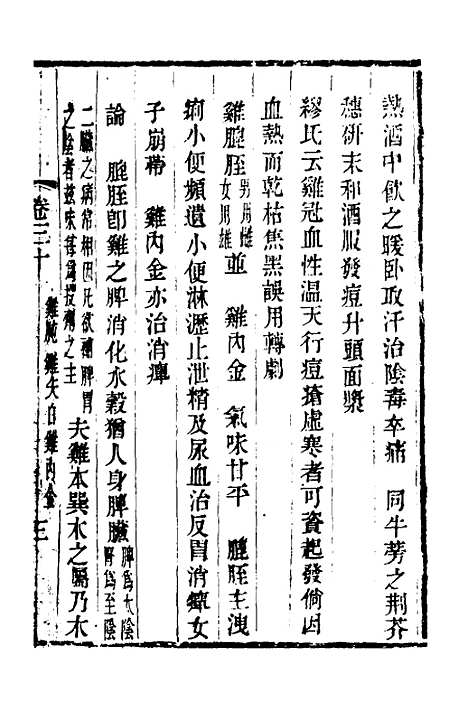 熱酒中飲之暖卧取汗治陰毒卒痛　同牛蒡之荆芥
穗研末和酒服發痘升頭面漿
繆氏云雞冠血性溫天行痘瘡虛寒者可資起發倘因
血熱而乾枯焦黑誤用轉劇
雞膍胵男用雌女用雄並　雞內金　氣味甘平　膍胵主洩
痢小便頻遺小便淋瀝止泄精及尿血治反胃消癉女
子崩帶　雞內金亦治消癉
論　膍胵卽雞之脾消化水穀猶人身脾臟脾爲太陰腎爲至陰
二臟之病常相因凡欲補脾胃之陰者茲味每爲投劑之主夫雞本巽木之屬乃木
卷三十　雞肫　雞矢白雞內金　三